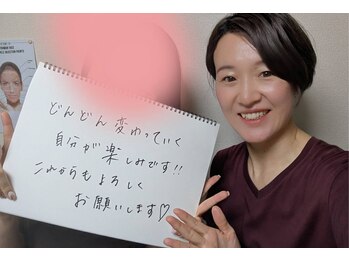 どんどん変わっていく
自分が楽しみです!!
これからもよろしく
お願いします♡